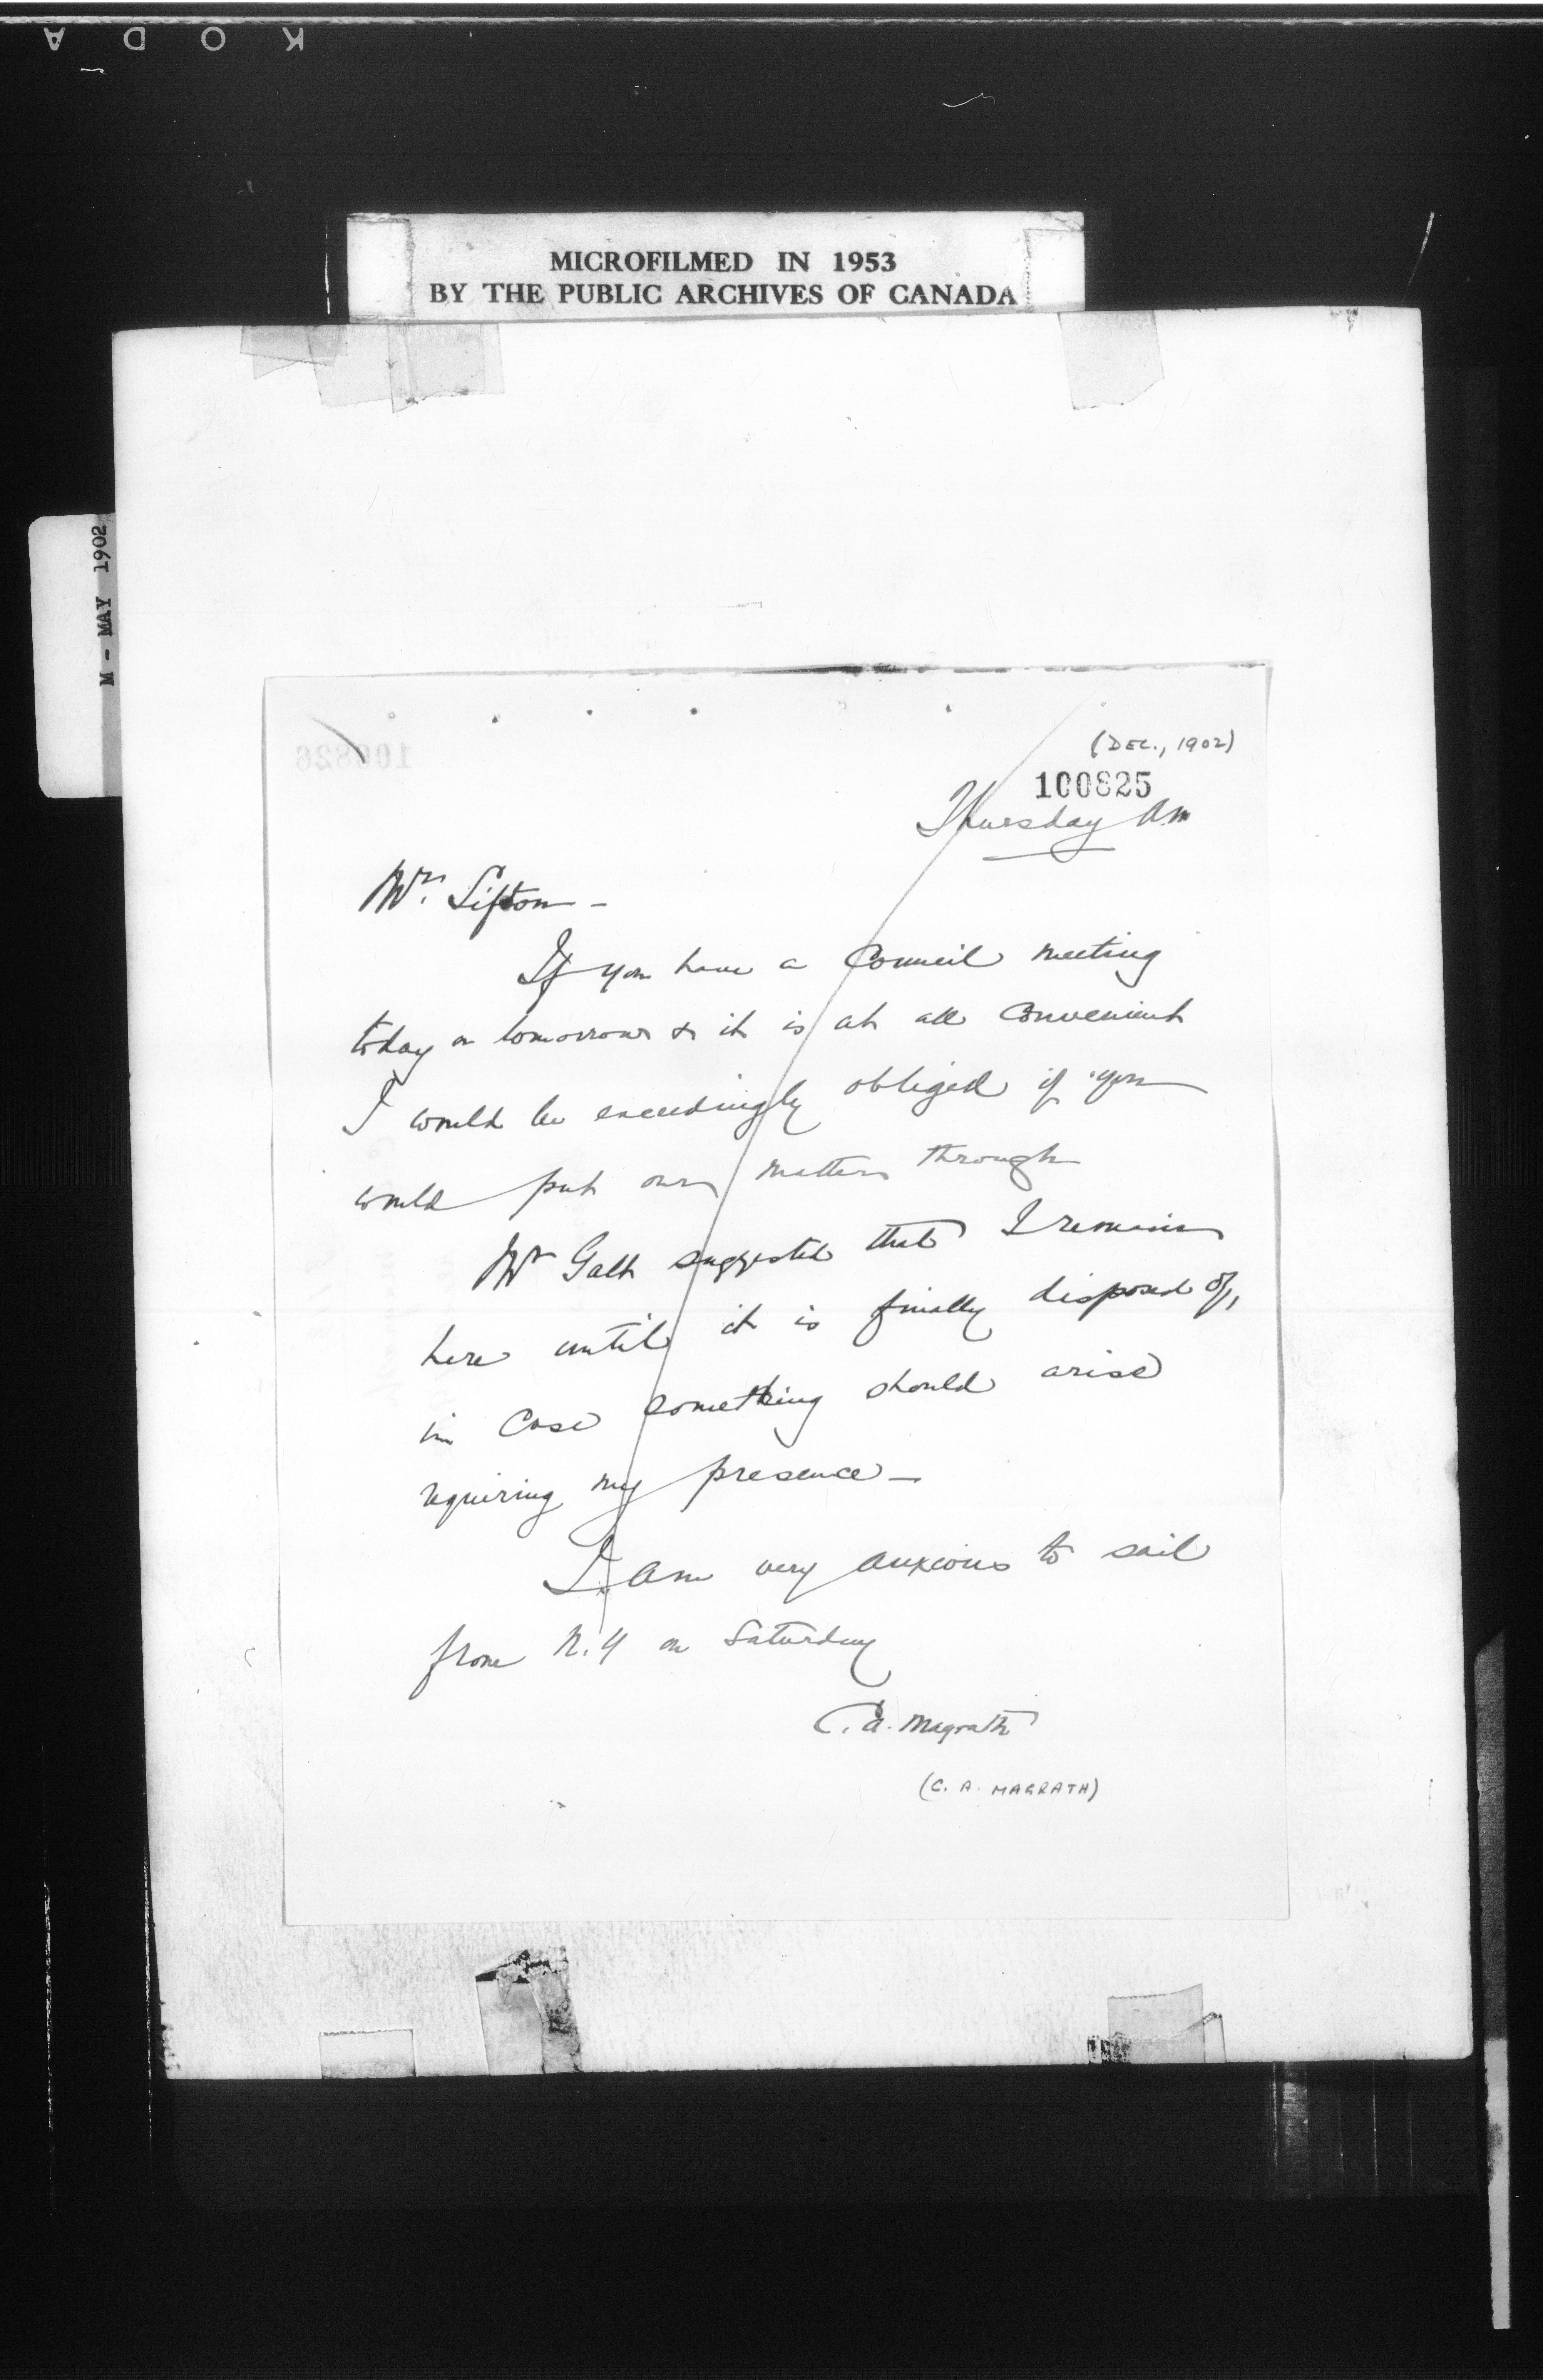 KODA
MICROFILMED IN 1953
BY THE PUBLIC ARCHIVES OF CANADA
M - MAY 1902
(DEC., 1902)
100826
100825
Thursday Am
Mr. Sifton -
If you have a Council meeting
today or tomorrow & it is at all convenient
I would be exceedingly obliged if you
would put our matters through
Mr Galt suggested that I remain
here until it is finally disposed of,
in case something should arise
requiring my presence -
I am very anxious to sail
from N.Y on Saturday
C. A. Magrath
(C. A. MAGRATH)